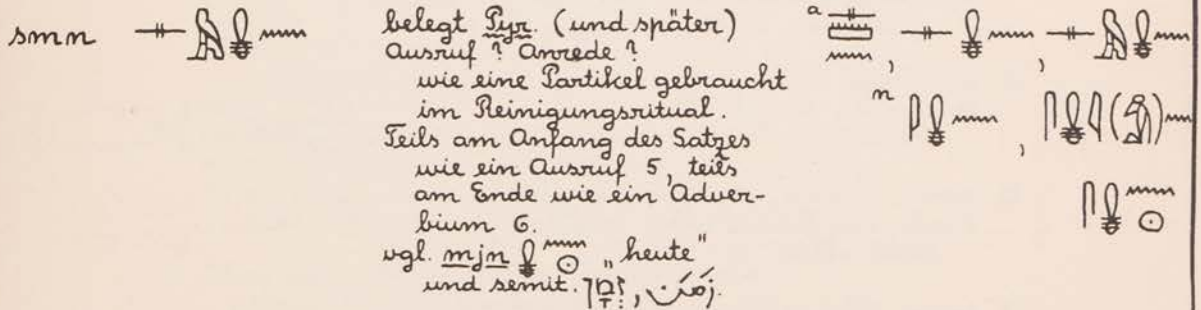 smn
belegt Pyr. (und später)
Ausruf ? Anrede ?
wie eine Partikel gebraucht
im Reinigungsritual.
Teils am Anfang des Satzes
wie ein Ausruf 5, teils
am Ende wie ein Adver-
bium 6.
vgl. mjn „heute"
und semit. זְמָן, زَمَن.
a
n